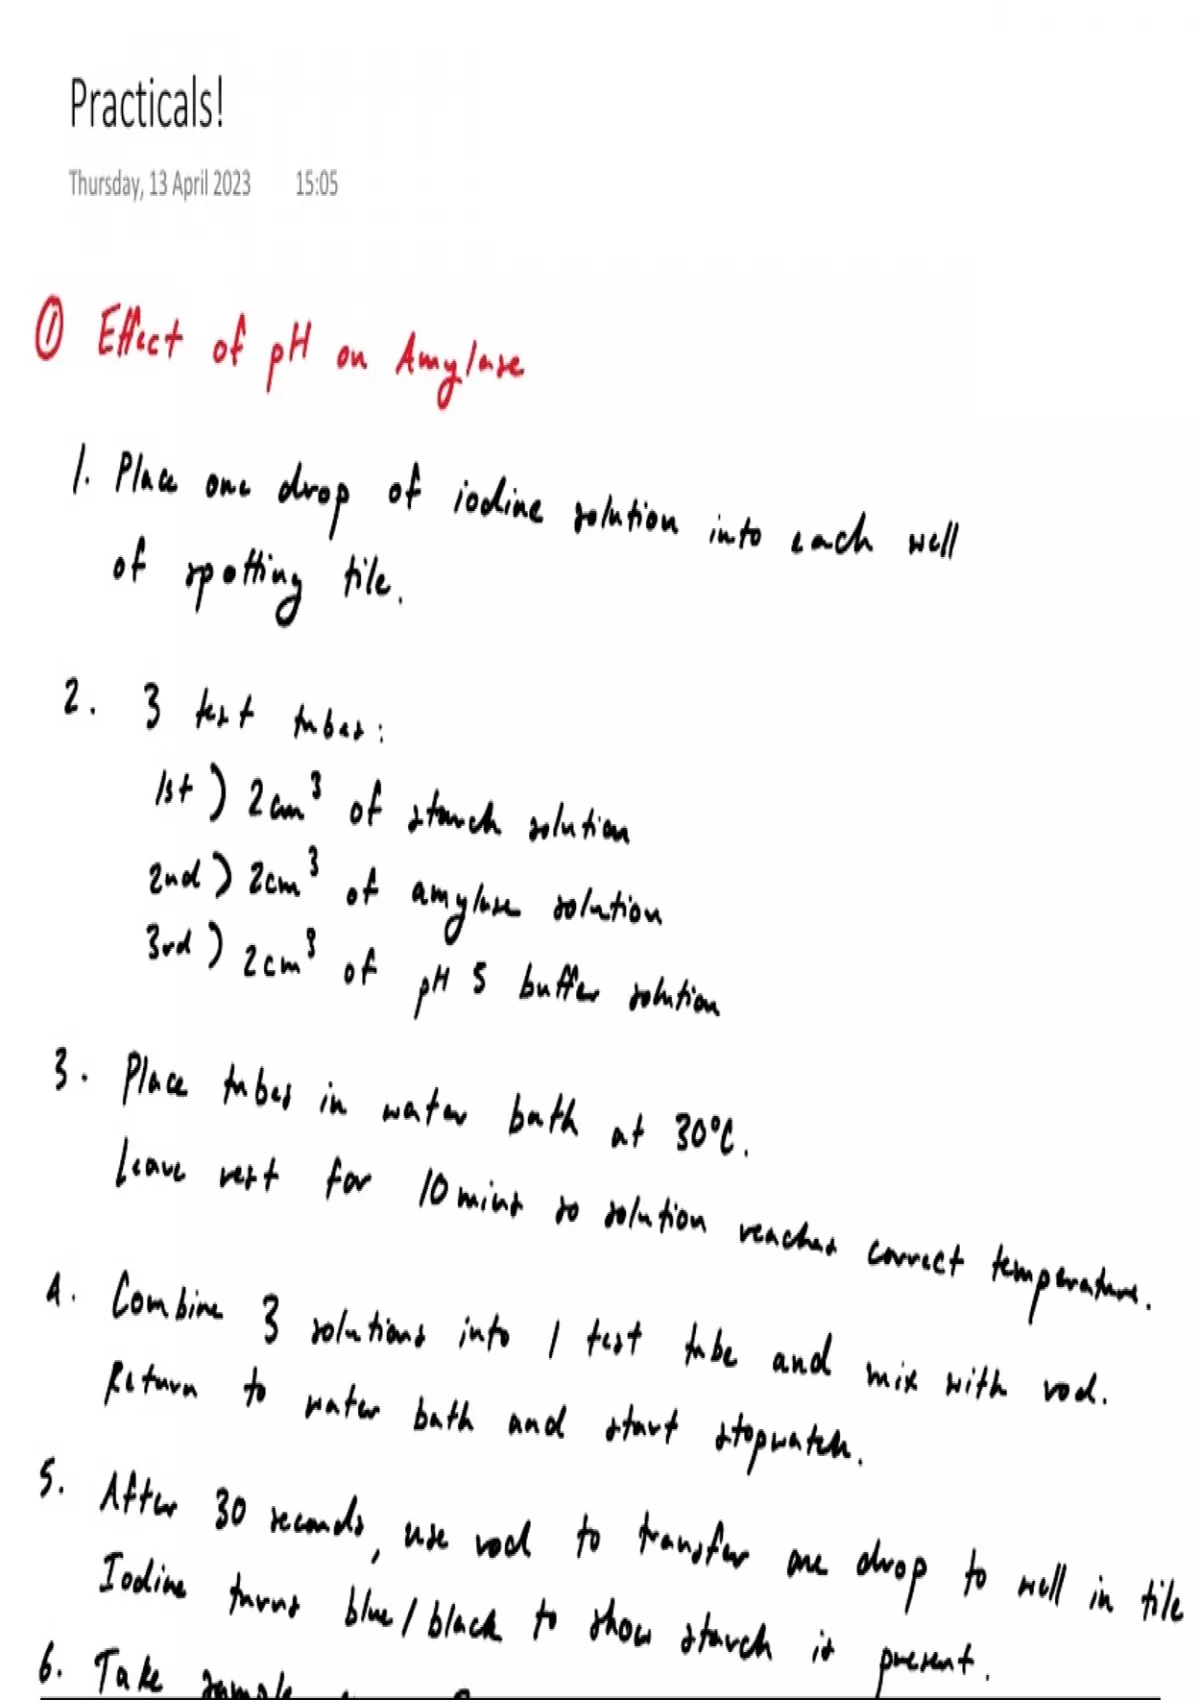 Practicals!
Thursday, 13 April 2023 15:05
① Effect of pH on Amylase
1. Place one drop of iodine solution into each well
of spotting tile.
2. 3 test tubes:
1st) 2cm³ of starch solution
2nd) 2cm³ of amylase solution
3rd) 2cm³ of pH 5 buffer solution
3. Place tubes in water bath at 30°C.
Leave rest for 10 mins so solution reaches correct temperature.
4. Combine 3 solutions into 1 test tube and mix with rod.
Return to water bath and start stopwatch.
5. After 30 seconds, use rod to transfer one drop to well in tile
Iodine turns blue/black to show starch is present.
6. Take sample